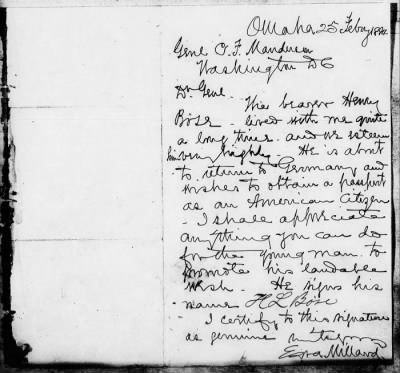 Omaha 25 Febry 1884
Genl C. F. Manderson
Washington D C
Dr Genl.
The bearer Henry
Böse - lived with me quite
a long time and we esteem
him very highly - He is about
to return to Germany and
wishes to obtain a passport
as an American Citizen
- I shall appreciate
anything you can do
for the young man to
promote his laudable
wish. He signs his
name H L Böse
I certify to this signature
as genuine
Ezra Millard